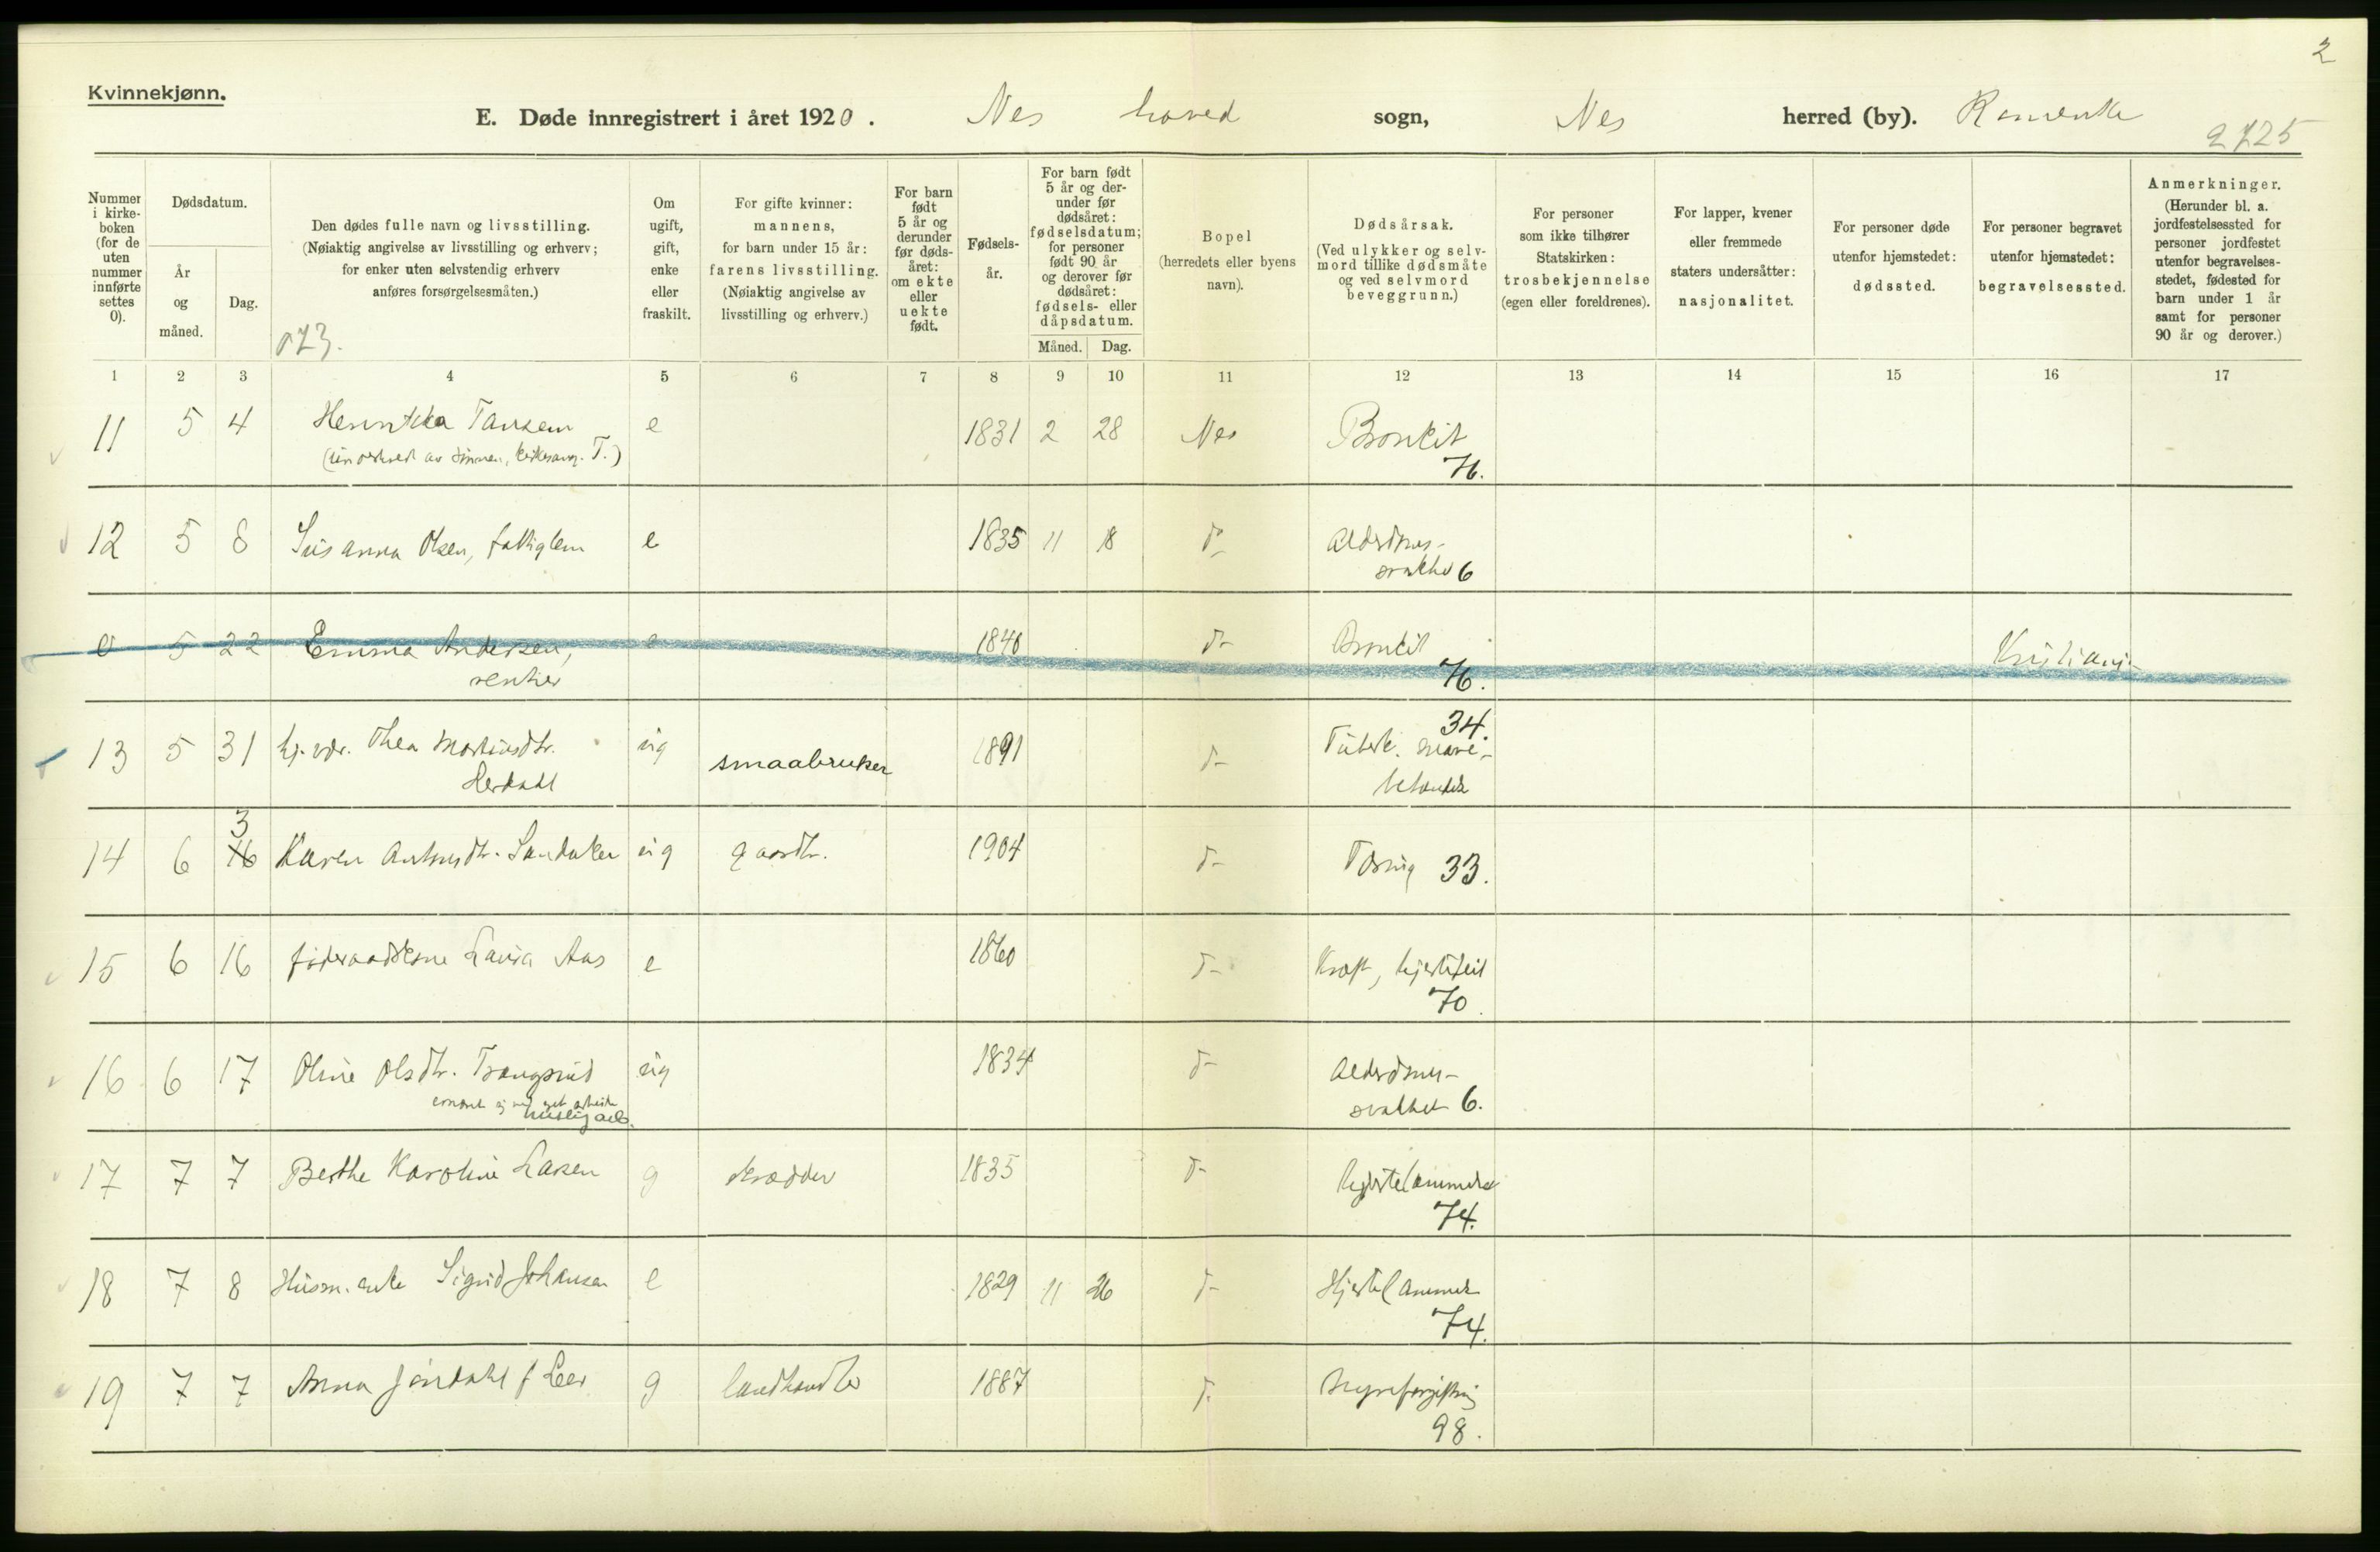 2
Kvinnekjønn.
E. Døde innregistrert i året 1920. Nes hoved sogn, Nes herred (by). Romerike
2725
Nummer i kirkeboken (for de uten nummer innførte settes 0).
Dødsdatum.
År og måned.
Dag.
Den dødes fulle navn og livsstilling.
(Nøiaktig angivelse av livsstilling og erhverv;
for enker uten selvstendig erhverv
anføres forsørgelsesmåten.)
Om ugift, gift, enke eller fraskilt.
For gifte kvinner: mannens, for barn under 15 år: farens livsstilling. (Nøiaktig angivelse av livsstilling og erhverv.)
For barn født 5 år og derunder før dødsåret: om ekte eller uekte født.
Fødselsår.
For barn født 5 år og derunder før dødsåret: fødselsdatum; for personer født 90 år og derover før dødsåret: fødsels- eller dåpsdatum.
Måned. Dag.
Bopel (herredets eller byens navn).
Dødsårsak. (Ved ulykker og selvmord tillike dødsmåte og ved selvmord beveggrunn.)
For personer som ikke tilhører Statskirken: trosbekjennelse (egen eller foreldrenes).
For lapper, kvener eller fremmede staters undersåtter: nasjonalitet.
For personer døde utenfor hjemstedet: dødssted.
For personer begravet utenfor hjemstedet: begravelsessted.
Anmerkninger. (Herunder bl. a. jordfestelsessted for personer jordfestet utenfor begravelsesstedet, fødested for barn under 1 år samt for personer 90 år og derover.)
1 2 3 4 5 6 7 8 9 10 11 12 13 14 15 16 17
11 5 4 e 1831 2 28 Nes Bronkit
76.
12 5 8 Susanna Olsen, fattiglem e 1835 11 18 d- Alderdoms-
svakhet 6
0 5 22 Emma Andersen, e 1840 d- Bronkit Kristiania
rentier 76.
34.
13 5 31 Thea Martinsdtr. ug smaabruker 1891 d- Tuberk.
3
14 6 16 Karen Antonsdtr. Sandaker ug gaardbr. 1904 d- Tæring 33.
15 6 16 føderaadskone Lavisa Aas e 1860 d- Kræft, hjertefeil
70.
16 6 17 Oline Olsdtr. ug 1834 d- Alderdoms-
huslig arb. svakhet 6.
17 7 7 Berthe Karoline Larsen g skrædder 1835 d- Hjertelammelse
74.
18 7 8 Husm. enke Sigrid Johansen e 1829 11 26 d- Hjertelammelse
74.
19 7 7 Anna g landhandler 1887 d- Nyreforgiftning
98.